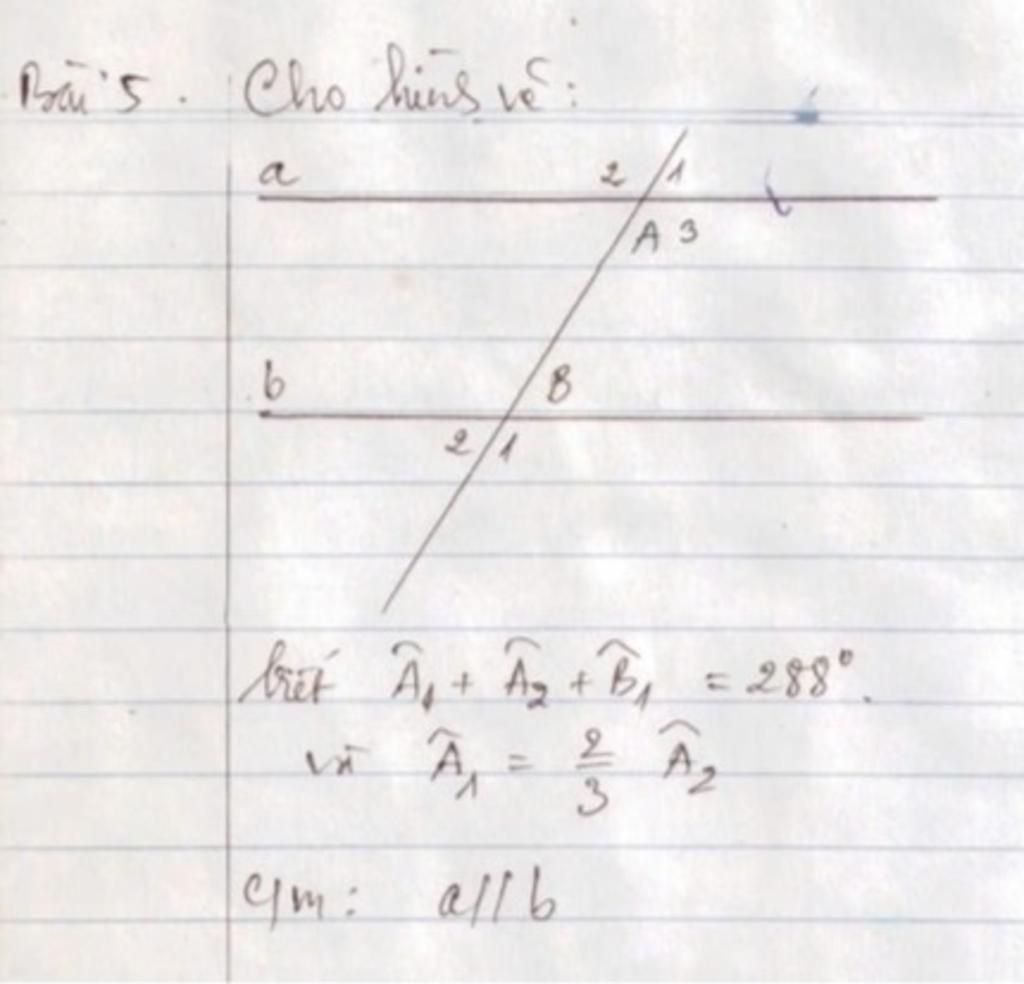 Bài 5. Cho hình vẽ:
a 2 1
A 3
b B
2 1
biết Â₁ + Â₂ + B̂₁ = 288°.
và Â₁ = 2/3 Â₂
c/m: a//b